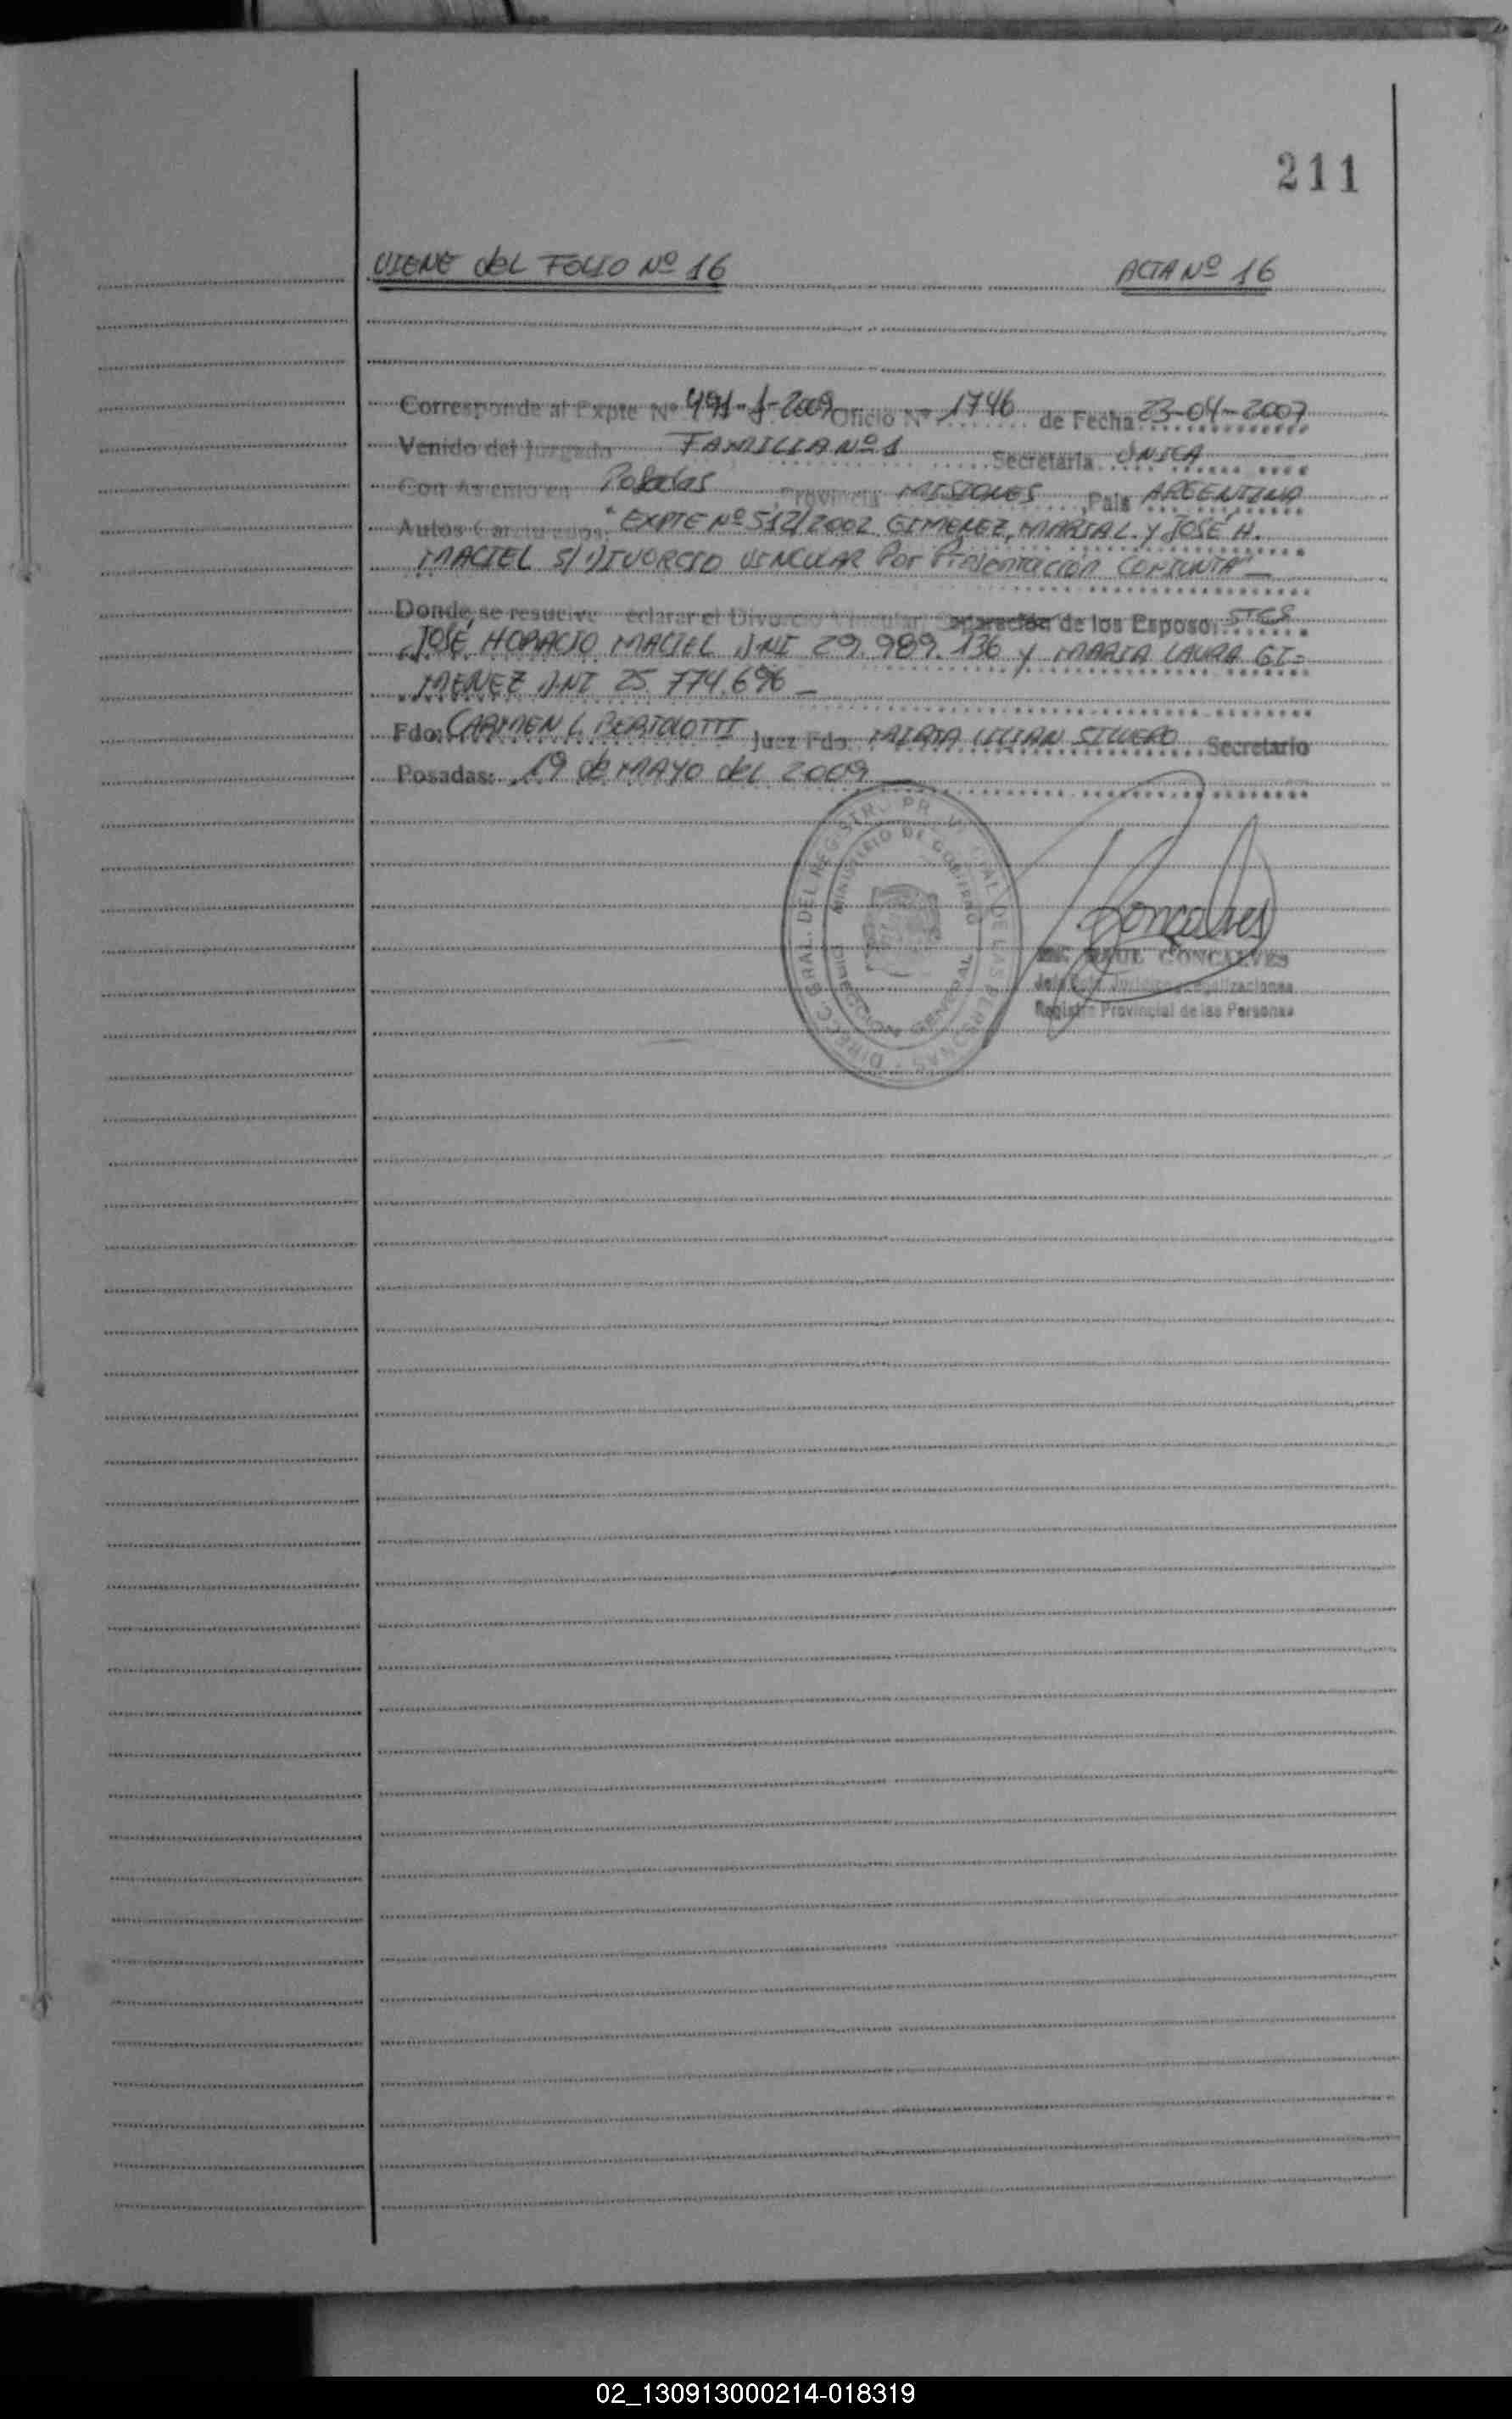 211
VIENE del FOLIO Nº 16 ACTA Nº 16
Corresponde al Expte Nº 491-J-2009 Oficio Nº 1746 de Fecha 23-04-2007
Venido del Juzgado FAMILIA Nº 1 Secretaria UNICA
Con Asiento en Posadas Provincia MISIONES Pais ARGENTINA
Autos Caratulados: "EXPTE Nº 512/2002 GIMENEZ, MARIA L. Y JOSÉ H.
MACIEL S/ DIVORCIO VINCULAR Por Presentación CONJUNTA"
Donde, se resuelve eclarar el Divorcio Vincular Separación de los Esposo:
JOSÉ HORACIO MACIEL DNI 29.989.136 y MARIA LAURA GI=
MENEZ DNI 25.774.696
Fdo: CARMEN L BERTOLOTTI Juez Fdo. MIRTA LILIAN SILVERO Secretario
Posadas: 19 de MAYO del 2009
DIRECC. GRAL. DEL REGISTRO PROVINCIAL DE LAS PERSONAS
MINISTERIO DE GOBIERNO
DIRECCION GENERAL
Goncalves
RAUL GONCALVES
Legalizaciones
Registro Provincial de las Personas
02_130913000214-018319